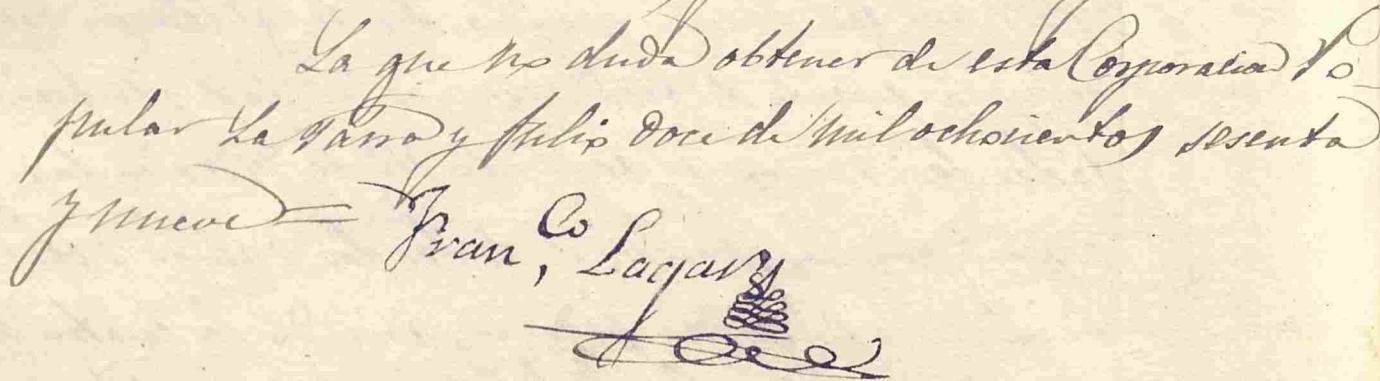 La que no duda obtener de esta Corporacion Po-
pular La Parra y Julio doce de mil ochosientos sesenta
y nueve =
Fran,co